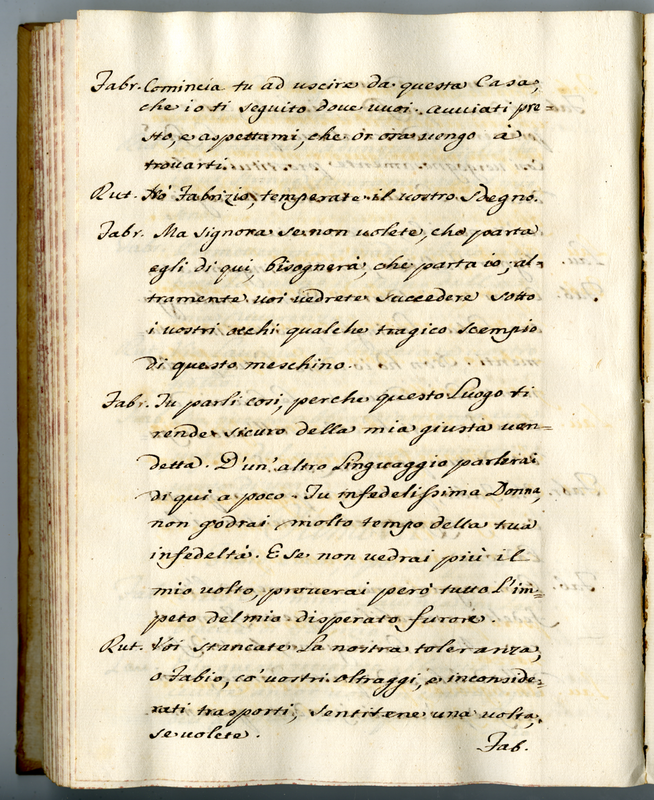 Fabr. Comincia tu ad uscire da questa Casa,
che io ti seguito dove vuoi. Avviati pre
sto, e aspettami, che or ora vengo a
trovarti.
Rut. Hò Fabrizio, temperate il vostro sdegno.
Fabr. Ma Signora se non volete, che parta
egli di qui, bisognerà, che parta io, al=
tramente voi vedrete succedere sotto
i vostri occhi qualche tragico scempio
di questo meschino.
Fabr. Tu parli così, perche questo Luogo ti
rende sicuro della mia giusta ven=
detta. D'un'altro Linguaggio parlerai
di qui a poco. Tu infedelissima Donna,
non godrai molto tempo della tua
infedeltà. E se non vedrai più il
mio volto, proverai però tutto l'im=
peto del mia disperato furore.
Rut. Voi stancate la nostra toleranza,
o Fabio, co' vostri oltraggi, e inconside=
rati trasporti, sentitene una volta,
se volete.
Fab.